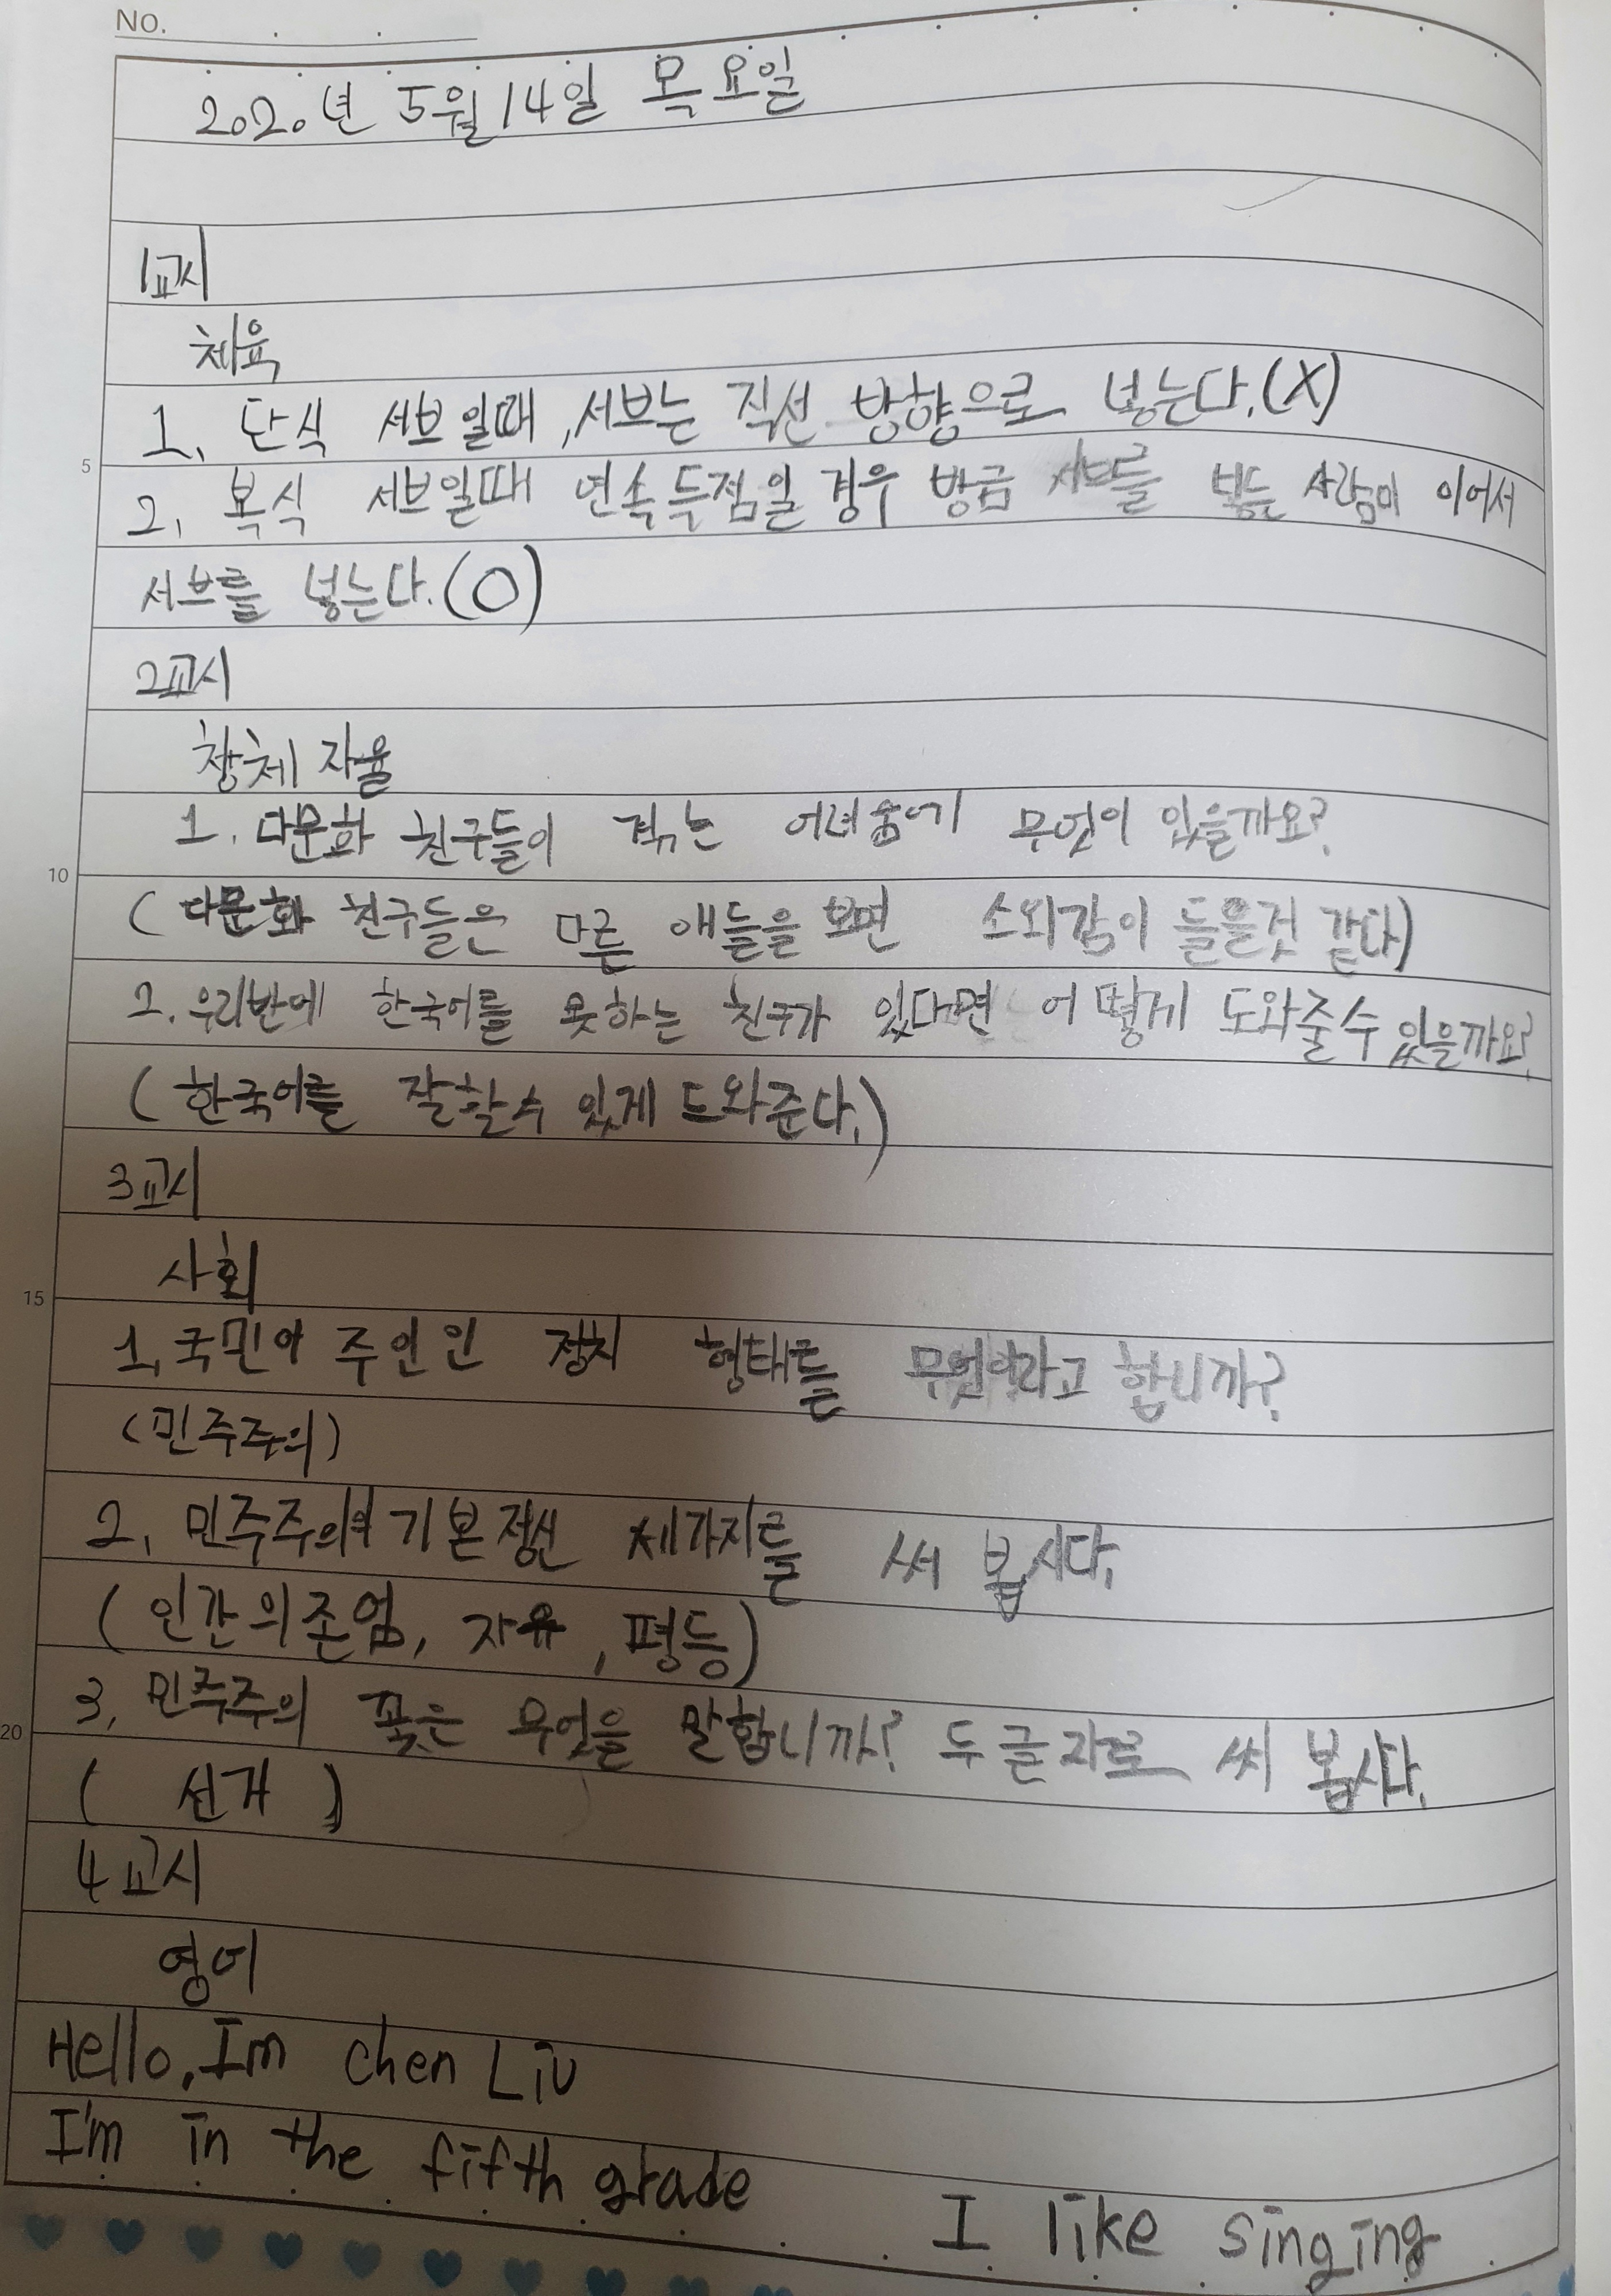 No.
2020년 5월 14일 목요일
1교시
체육
1. 단식 서브일때, 서브는 직선 방향으로 넣는다.(X)
5
2. 복식 서브일때 연속득점일 경우 방금 서브를 넣는 사람이 이어서
서브를 넣는다.(O)
2교시
창체 자율
1. 다문화 친구들이 겪는 어녀움에 무엇이 있을까요?
10
(다문화 친구들은 다른 애들을 보면 소외감이 들을것 같다)
2. 우리반에 한국어를 못하는 친구가 있다면 어떻게 도와줄수 있을까요?
(한국어를 잘할수 있게 도와준다.)
3교시
사회
15
1. 국민이 주인인 정치 형태를 무엇이라고 합니까?
(민주주의)
2. 민주주의의 기본정신 세가지를 써 봅시다.
(인간의존엄, 자유, 평등)
3. 민주주의 꽃은 무엇을 말합니까? 두글자로 써 봅시다.
20
( 선거 )
4교시
영어
Hello, Im chen Liu
I'm in the fifth grade
I like singing